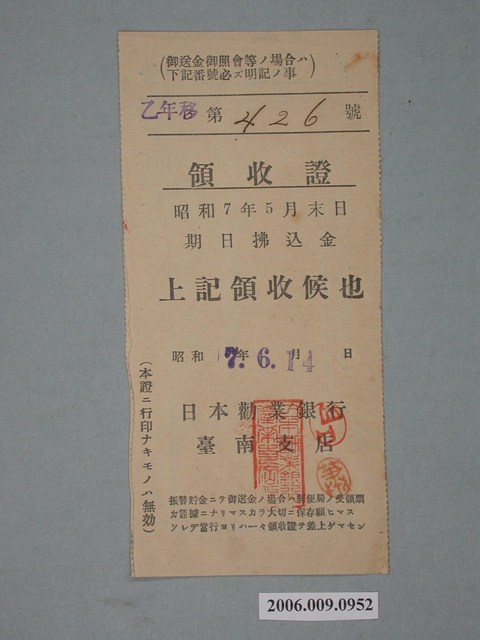 (御送金御照會等ノ場合ハ
下記番號必ズ明記ノ事)
乙年務 第 426 號
領收證
昭和7年5月末日
期日拂込金
上記領收候也
昭和 7年 6月 14日
日本勸業銀行
臺南支店
(本證ニ行印ナキモノハ無効)
振替貯金ニテ御送金ノ場合ハ郵便局ノ受領票
ガ證據ニナリマスカラ大切ニ保存願ヒマス
ソレデ當行ヨリハ一々領收證ヲ差上ゲマセン
2006.009.0952